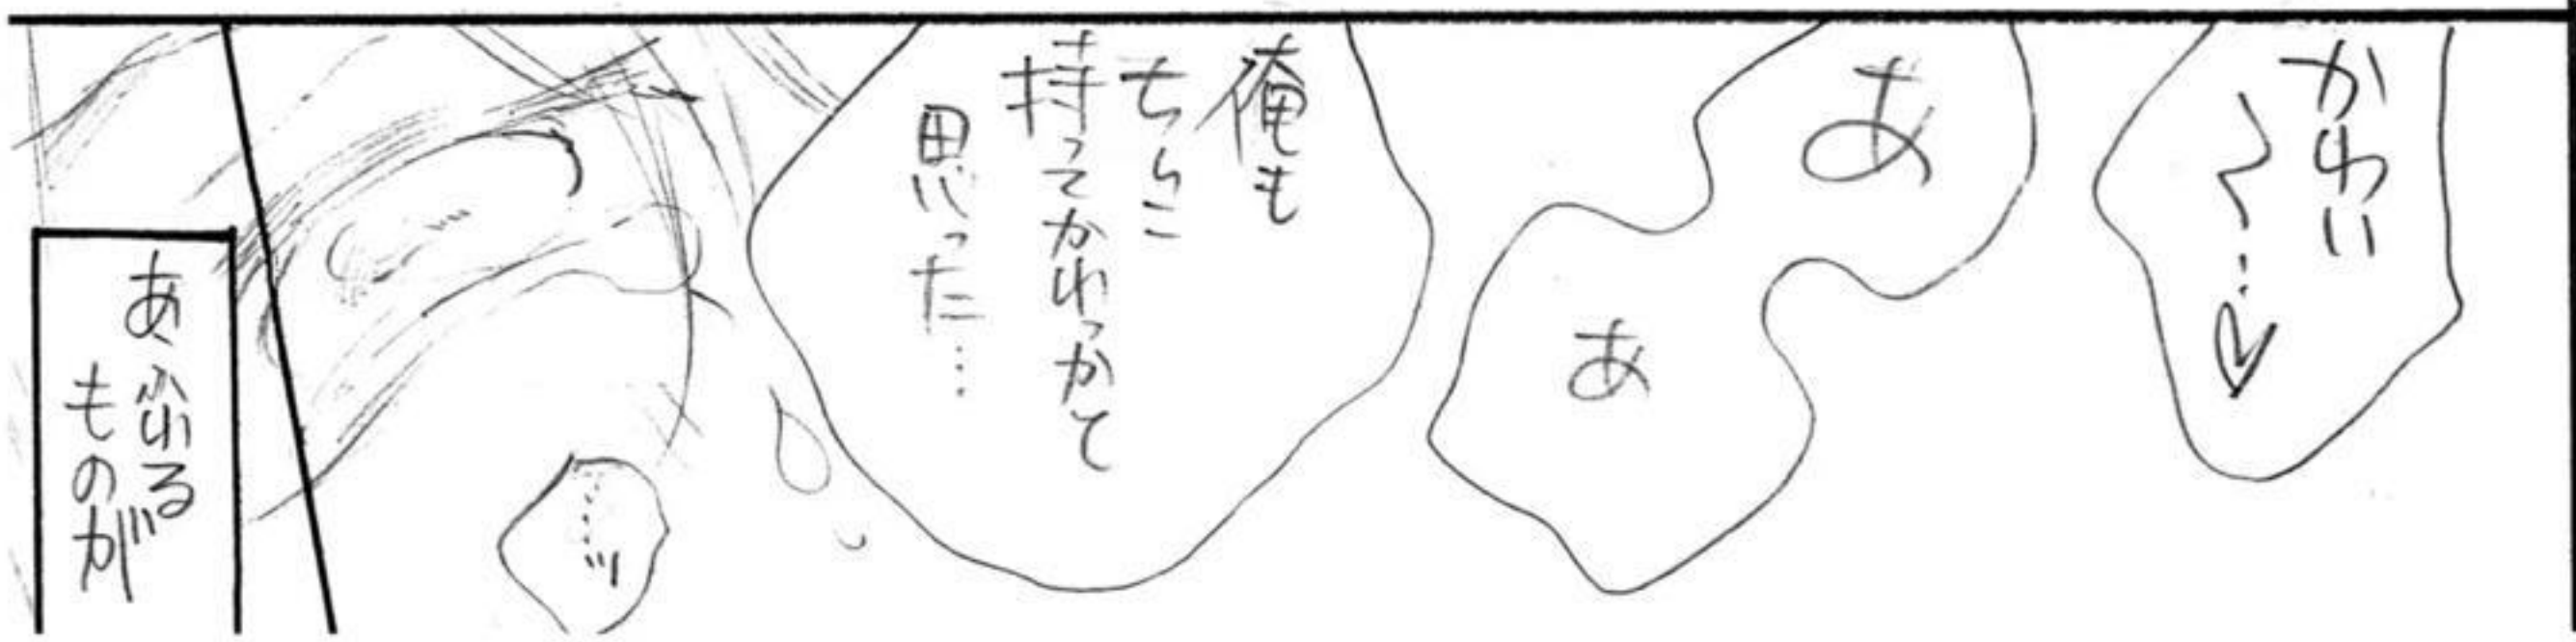 かわい
〜…♡
あ
あ
俺も
ちんこ
持ってかれっかて
思った…
……ッ
あふれる
ものが